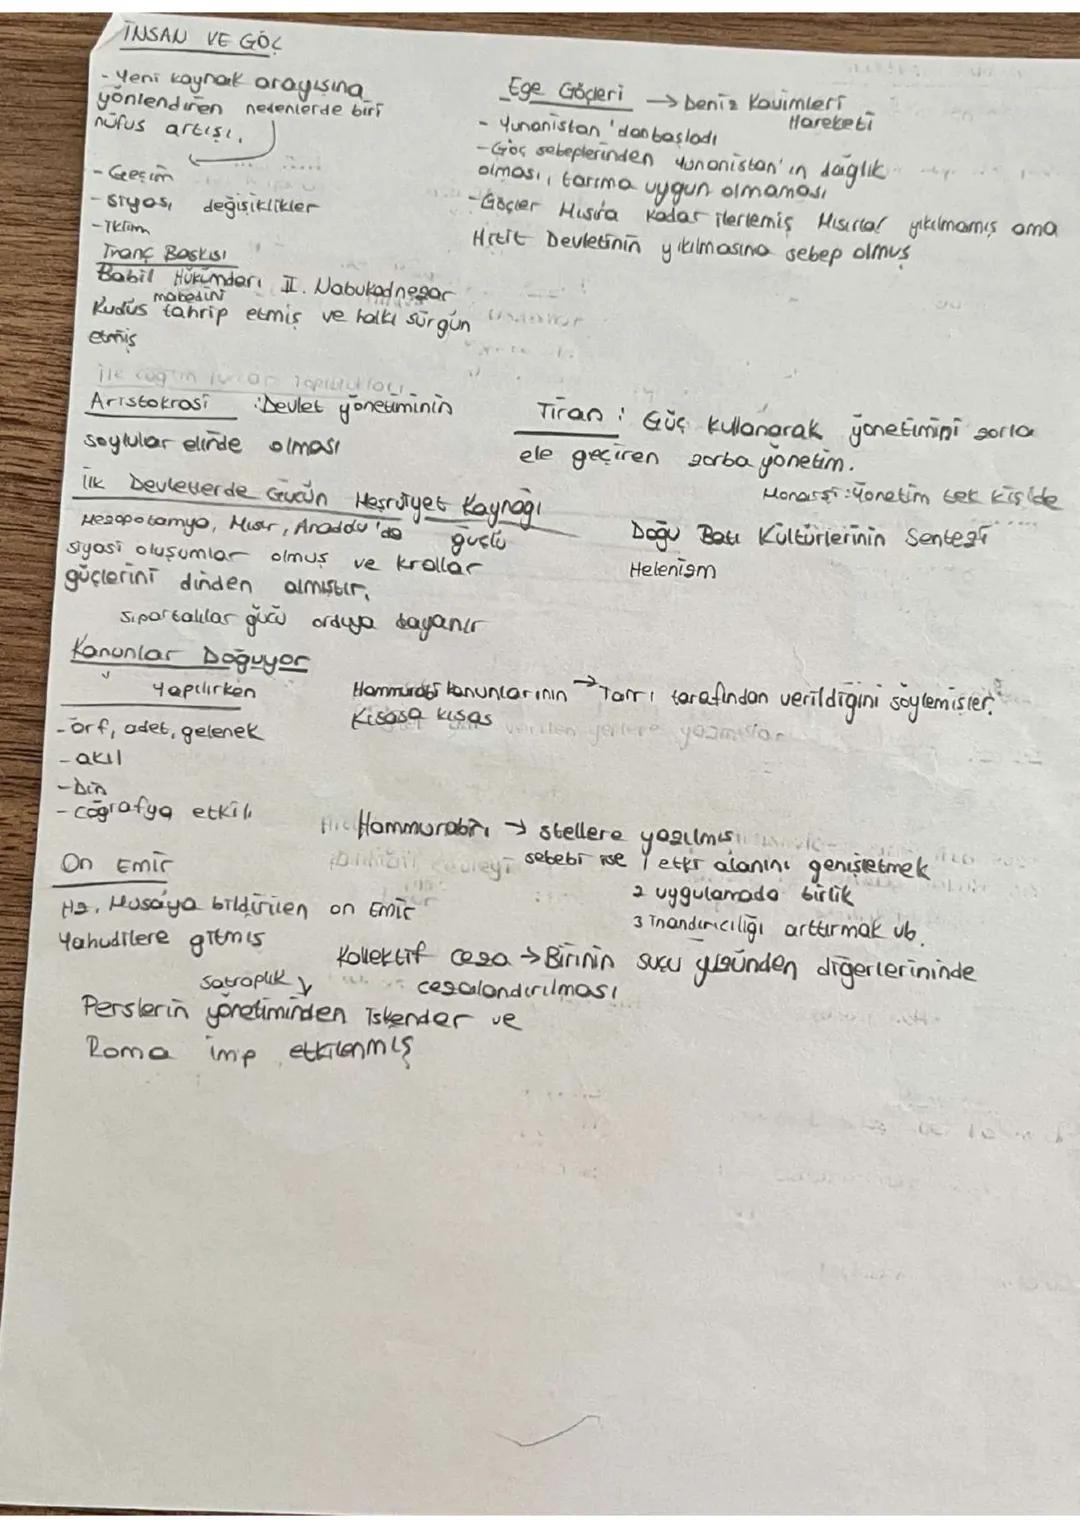 İNSAN VE GÖÇ
- Yeni kaynak arayışına
yönlendiren nedenlerde biri
nüfus artışı.
- Geçim
- Siyası değişiklikler
- İklim
İnanç Baskısı
Babil Hükümdarı II. Nabukadnezar
Kudüs mabedini tahrip etmiş ve halkı sürgün
etmiş
Ege Göçleri → Deniz Kavimleri
Hareketi
- Yunanistan'dan başladı
- Göç sebeplerinden Yunanistan'ın dağlık
olması, tarıma uygun olmaması
- Göçler Mısıra kadar ilerlemiş Mısırlar yıkılmamış ama
Hitit Devletinin yıkılmasına sebep olmuş
Aristokrasi : Devlet yönetiminin
soylular elinde olması
Tiran : Güç kullanarak yönetimini zorla
ele geçiren zorba yönetim.
Monarşi : Yönetim tek kişide
İlk Devletlerde Gücün Meşruiyet Kaynağı
Mezopotamya, Mısır, Anadolu'da güçlü
siyasi oluşumlar olmuş ve krallar
güçlerini dinden almıştır.
Sıpartalılar gücü orduya dayanır
Doğu Batı Kültürlerinin Sentezi
Helenizm
Kanunlar Doğuyor
Yapılırken
- örf, adet, gelenek
- akıl
- Din
- coğrafya etkili
Hammurabi kanunlarının → Tanrı tarafından verildiğini söylemişler.
Kısasa kısas
Hammurabi → stellere yazılmış
sebebi ise 1 etki alanını genişletmek
2 uygulamada birlik
3 inandırıcılığı arttırmak vb.
On Emir
Hz. Musa'ya bildirilen on Emir
Yahudilere gitmiş
Kollektif ceza → Birinin suçu yüzünden diğerlerininde
cezalandırılması
Satraplık
Perslerin yönetiminden İskender ve
Roma imp etkilenmiş